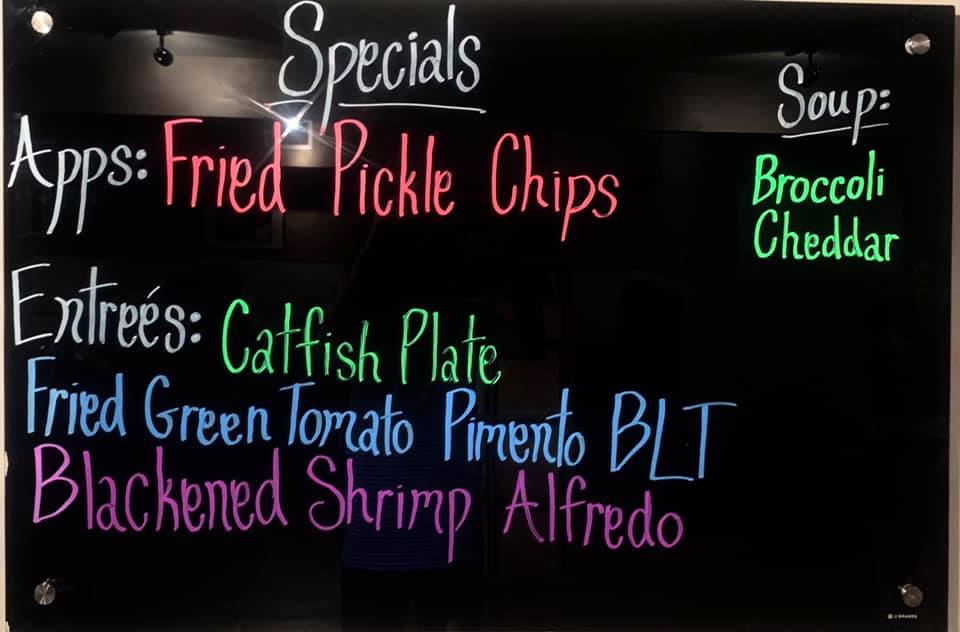 Specials
Apps: Fried Pickle Chips
Entreés: Catfish Plate
Fried Green Tomato Pimento BLT
Blackened Shrimp Alfredo
Soup:
Broccoli
Cheddar
U BRANDS